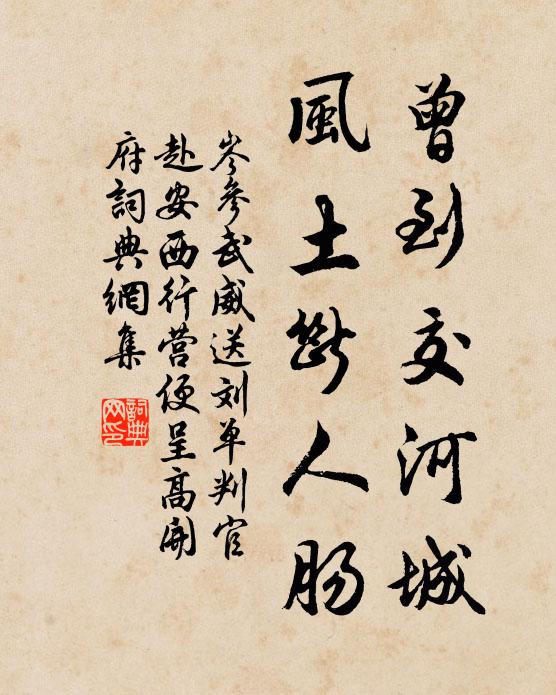 曾到交河城
風土斷人腸
岑參武威送刘单判官
赴安西行营便呈高開
府詞典網集
詞典网印